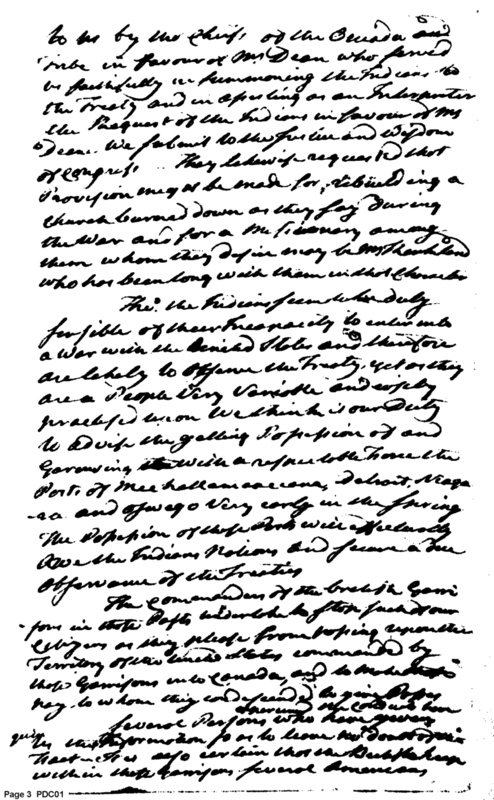 to us by the Chiefs of the Oneida and
Tribe in favour of Mr Dean who served
us faithfully in summoning the Indians to
the Treaty and in assisting as an Interpreter
the Request of the Indians in favour of Mr
Dean we submit to the Justice and Wisdom
of Congress. They likewise requested that
Provision might be made for rebuilding a
Church burned down as they say during
the War and for a Missionary among
them whom they desire may be Mr
who has been long with them in that Character
Tho. the Indians seem to be duly
sensible of their Incapacity to enter into
a War with the United States and therefore
are likely to observe the Treaty, yet as they
are a People Very Variable and
practised upon We think it our Duty
to advise the getting Possession of and
Garrisoning with a respectable Force the
Posts of Detroit, Niaga
-ra and Oswego Very early in the Spring
The Possession of those Posts will effectually
Awe the Indians Nations and secure a due
Observance of the Treaties
The Commanders of the british Garri
-sons in those Posts undertake to stop such of our
Citizens as they please from passing upon the
Territory of the United States commanded by
those Garrisons into Canada, and to make
to whom they condescend to give Passes
several Persons who have given
us this Information so as to leave no doubt of
It is also certain that the British keep
within those Garrisons several Americans
Page 3 PDC01